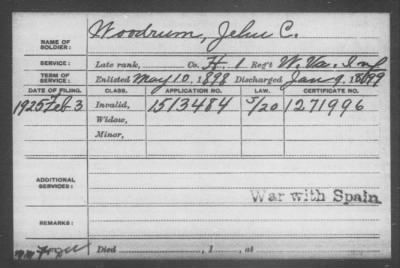 NAME OF SOLDIER: Woodrum, Jehu C.
SERVICE: Late rank, Co. H. 1 Reg't W. Va. Inf
TERM OF SERVICE: Enlisted May 10, 1898 Discharged Jan 9, 1899
DATE OF FILING. CLASS. APPLICATION NO. LAW. CERTIFICATE NO.
1925 Feb 3 Invalid, 1513484 5/20 1271996
Widow,
Minor,
ADDITIONAL SERVICES:
War with Spain
REMARKS:
Died , 1 , at